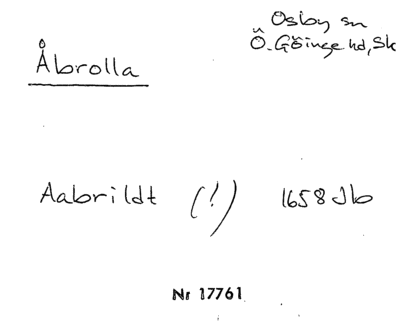 Osby sn
Ö. Göinge hd, Sk
Åbrolla
Aabrildt (!) 1658 Jb
Nr 17761